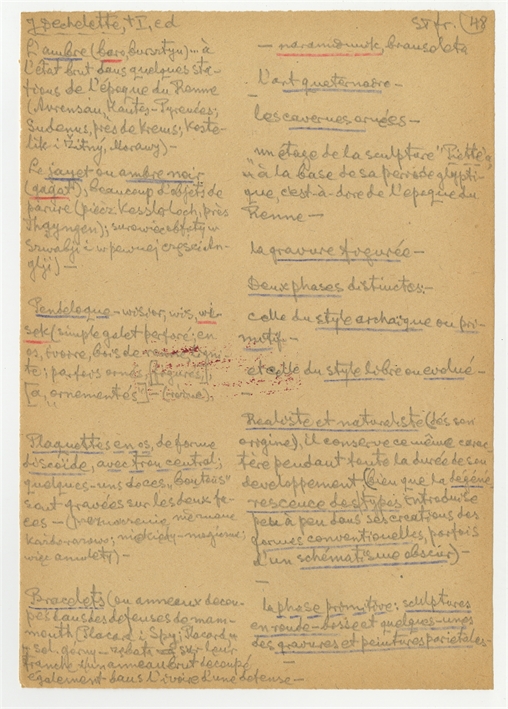 J Dechelette, t I, ed
SV fr. (48
L'ambre (baro, bursztyn) — à
l'état brut dans quelques sta-
tions de l'époque du Renne
(Aurensan, Hautes-Pyrenées;
Sudenus, près de Krems; Koste-
lik i Žitny, Moravy) —
Le jayet ou ambre noir
(gagat), beaucoup d'objets de
parure (pièce Kessler Loch, près
Thayngen); surowiec obfity w
Szwabji i w pewnej części An-
glji) —
Pendeloque — wisior, wis, wi-
sek (simple galet perforé; en
os, ivoire, bois de
te; parfois ornés [figures];
[a, ornementés] —
Plaquettes en os, de forme
discoïde, avec trou central;
quelques-uns de ces "boutons"
sont gravées sur les deux fa-
ces —
więc amulety) —
Bracelets (ou anneaux decou-
pés dans des défenses de mam-
mouth (Placard i Spy; Placard, w
sol. górny — sur leur
tranche — un anneau brut decoupé
egalement dans l'ivoire d'une defense —
— naramiennik, bransoleta
L'art quaternaire —
les cavernes ornées —
un étage de la sculpture "Piette'a
" à la base de sa periode glypti-
que, c'est-à-dire de l'epoque du
Renne —
la gravure figurée —
Deux phases distinctes: —
celle du style archaïque ou pri-
mitif —
et celle du style libre ou evolué —
Realiste et naturaliste (dès son
origine), il conserve ce même carac-
tère pendant toute la durée de son
developpement (bien que la dégéne-
rescence des types introduise
peu à peu dans ses creations des
formes conventionelles, parfois
d'un schématisme obscur) —
—
la phase primitive: sculptures
en ronde-bosse et quelques-unes
des gravures et peintures parietales —